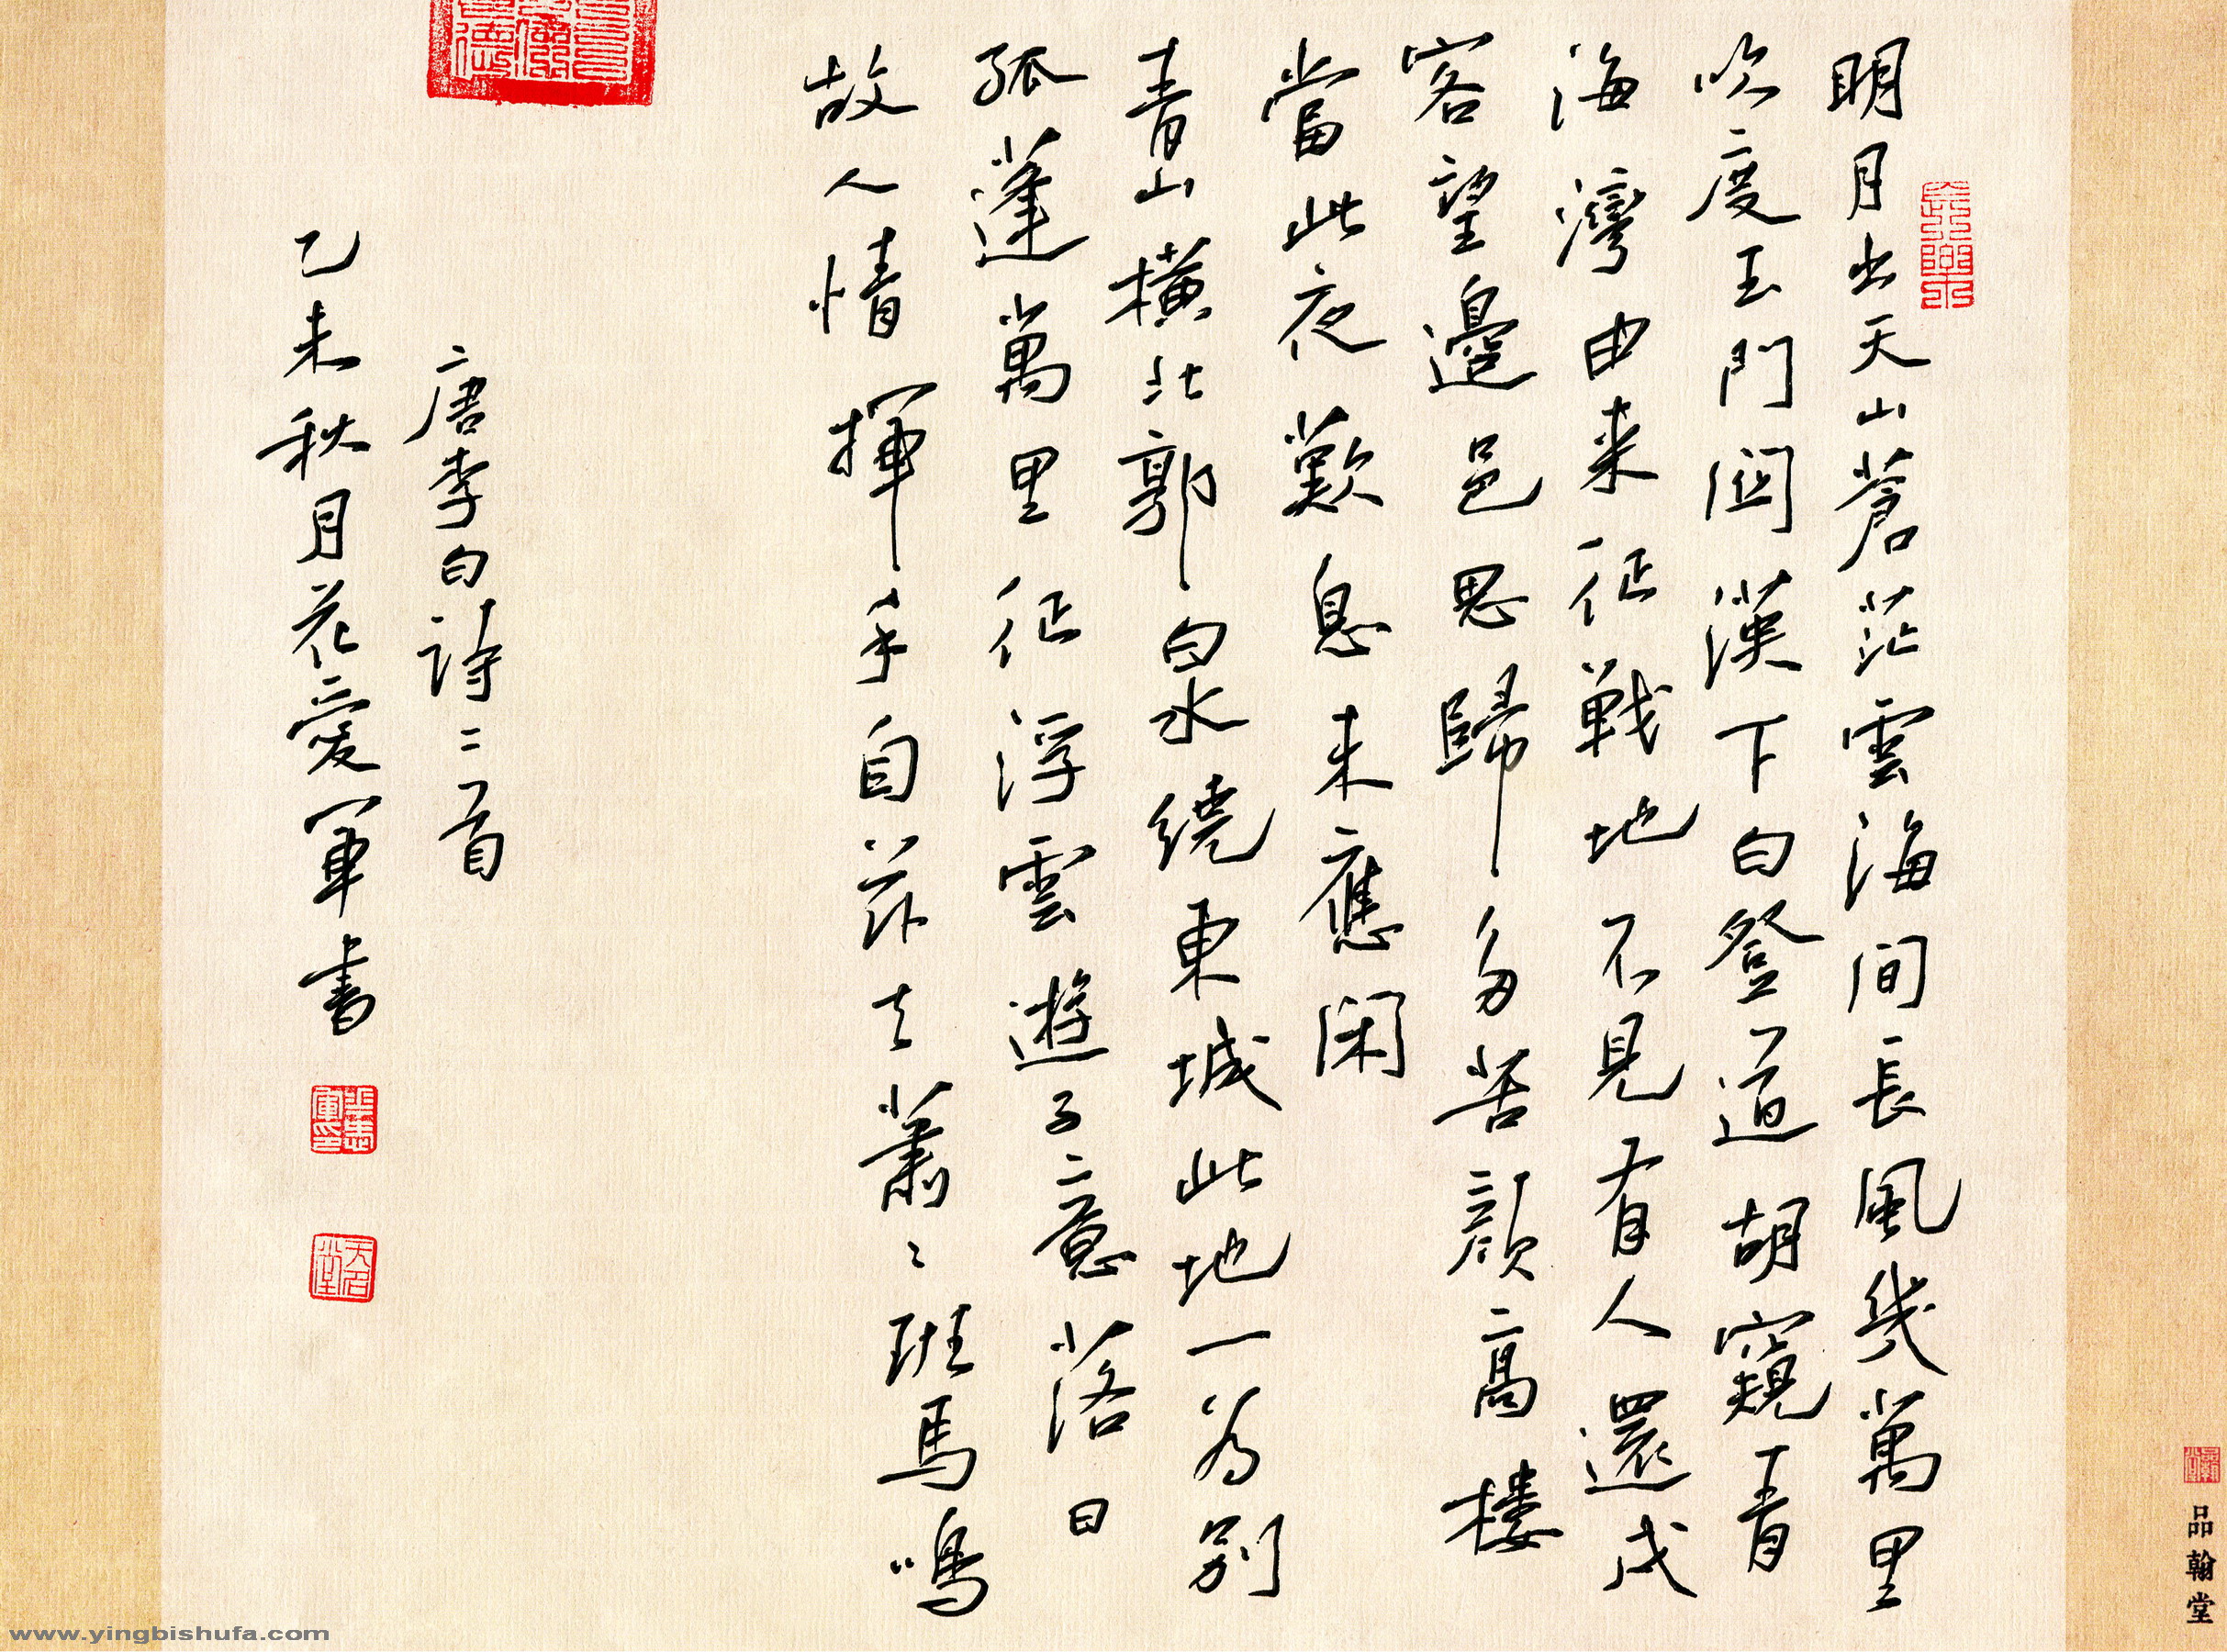 明月出天山蒼茫雲海间長風幾萬里
吹度玉門関漢下白登道胡窺青
海灣由来征戰地不見有人還戍
客望邊邑思歸多苦顏高樓
當此夜歎息未應闲
青山橫北郭白水繞東城此地一为别
孤蓬萬里征浮雲遊子意落日
故人情揮手自茲去蕭々班馬鳴
唐李白詩二首
乙未秋月花愛軍書
品翰堂
www.yingbishufa.com